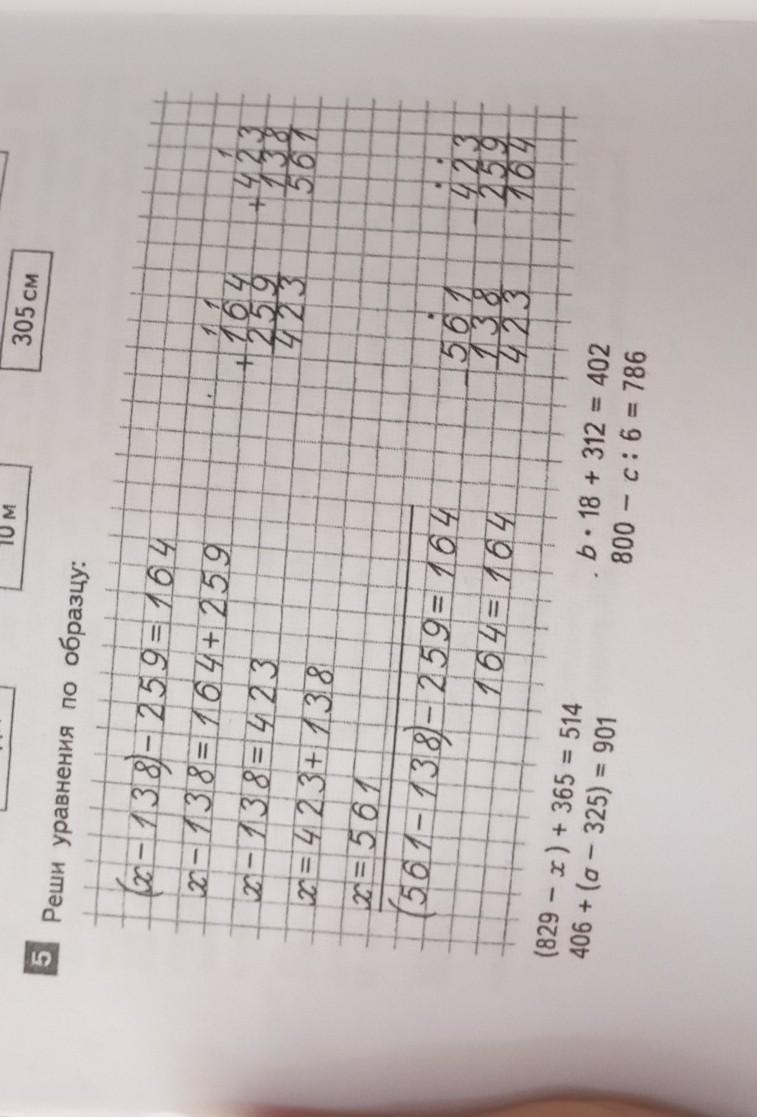 10 м
305 см
5 Реши уравнения по образцу:
(x − 138) − 259 = 164
x − 138 = 164 + 259
x − 138 = 423
x = 423 + 138
x = 561
(561 − 138) − 259 = 164
164 = 164
1 1
+ 164
259
423
1
+ 423
138
561
− 561
138
423
− 423
259
164
(829 − x) + 365 = 514
406 + (a − 325) = 901
b · 18 + 312 = 402
800 − c : 6 = 786